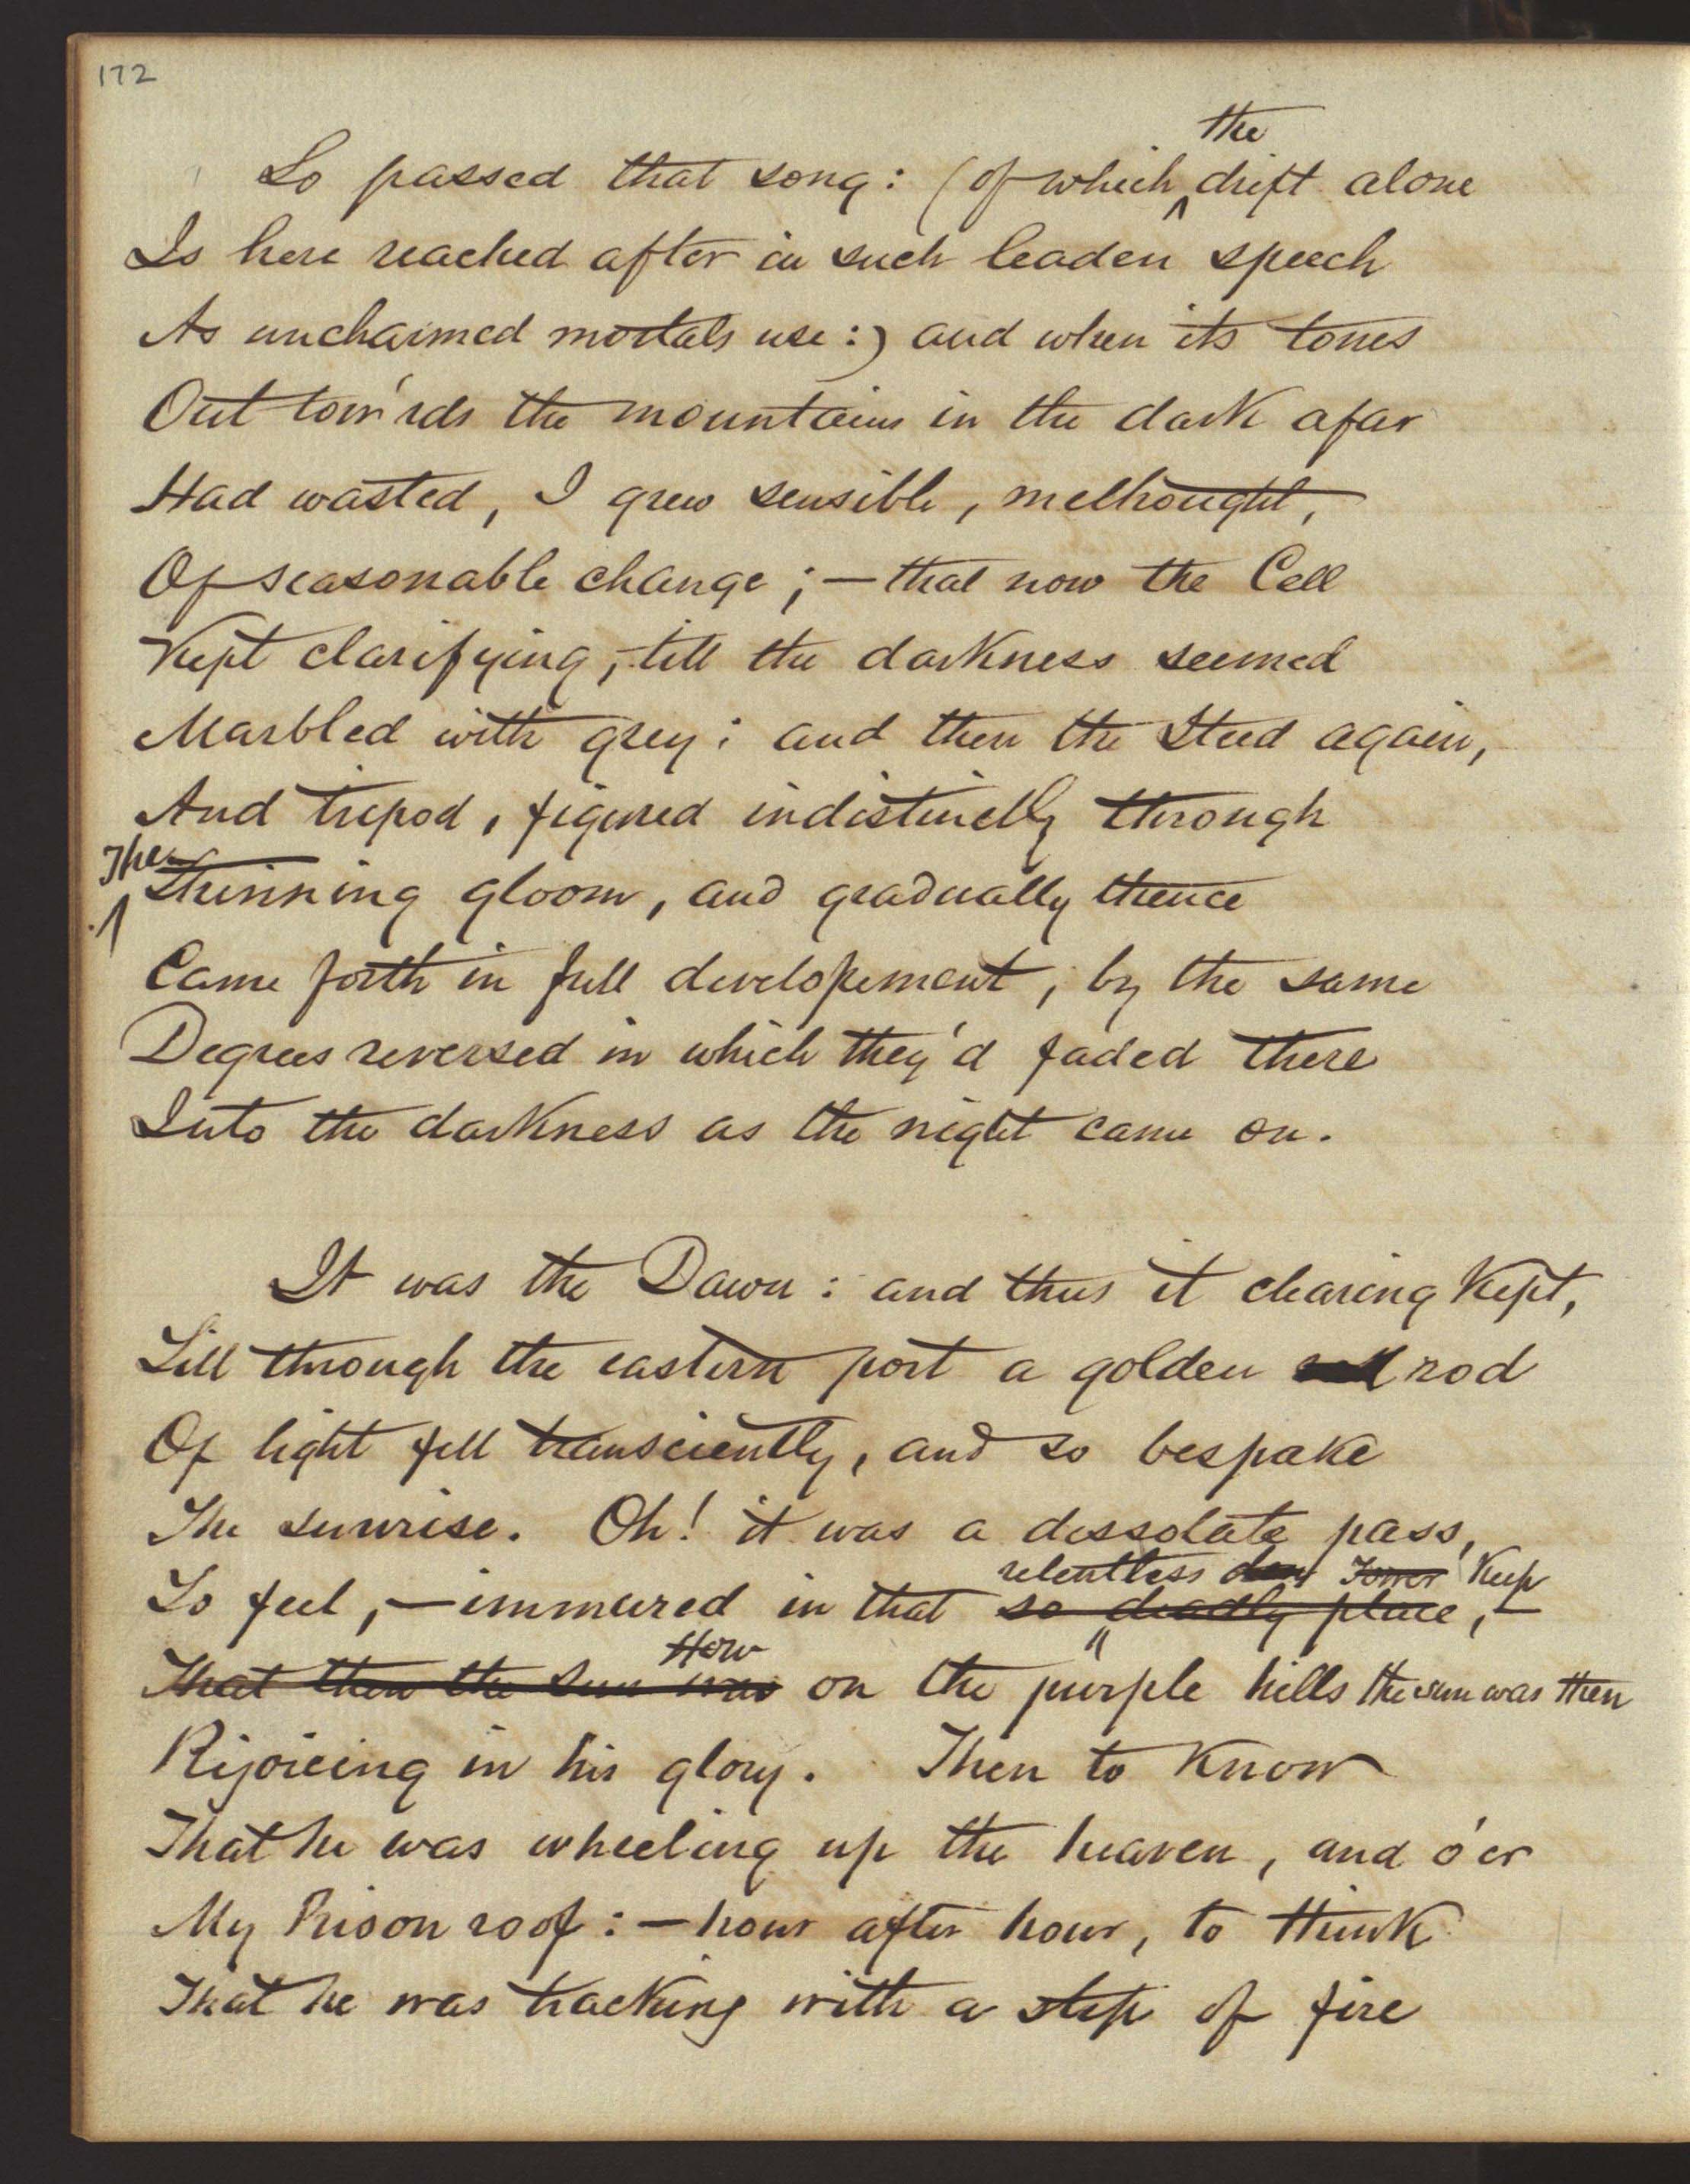 172
So passed that song: (of which the drift alone
Is here reached after in such leaden speech
As uncharmed mortals use:) and when its tones
Out tow'rds the mountains in the dark afar
Had wasted, I grew sensible, methought,
Of seasonable change; — that now the Cell
Kept clarifying, till the darkness seemed
Marbled with grey; and then the Steed again,
And tripod, figured indistinctly through
The thinning gloom, and gradually thence
Came forth in full developement, by the same
Degrees reversed in which they'd faded there
Into the darkness as the night came on.
It was the Dawn: and thus it clearing kept,
Till through the eastern port a golden rod
Of light fell transciently, and so bespake
The sunrise. Oh! it was a dessolate pass,
relentless den Tower Keep
To feel, — immured in that so deadly place, —
How
That then the sun was on the purple hills the sun was then
Rejoicing in his glory. Then to know
That he was wheeling up the heaven, and o'er
My Prison roof: — hour after hour, to think
That he was tracking with a step of fire